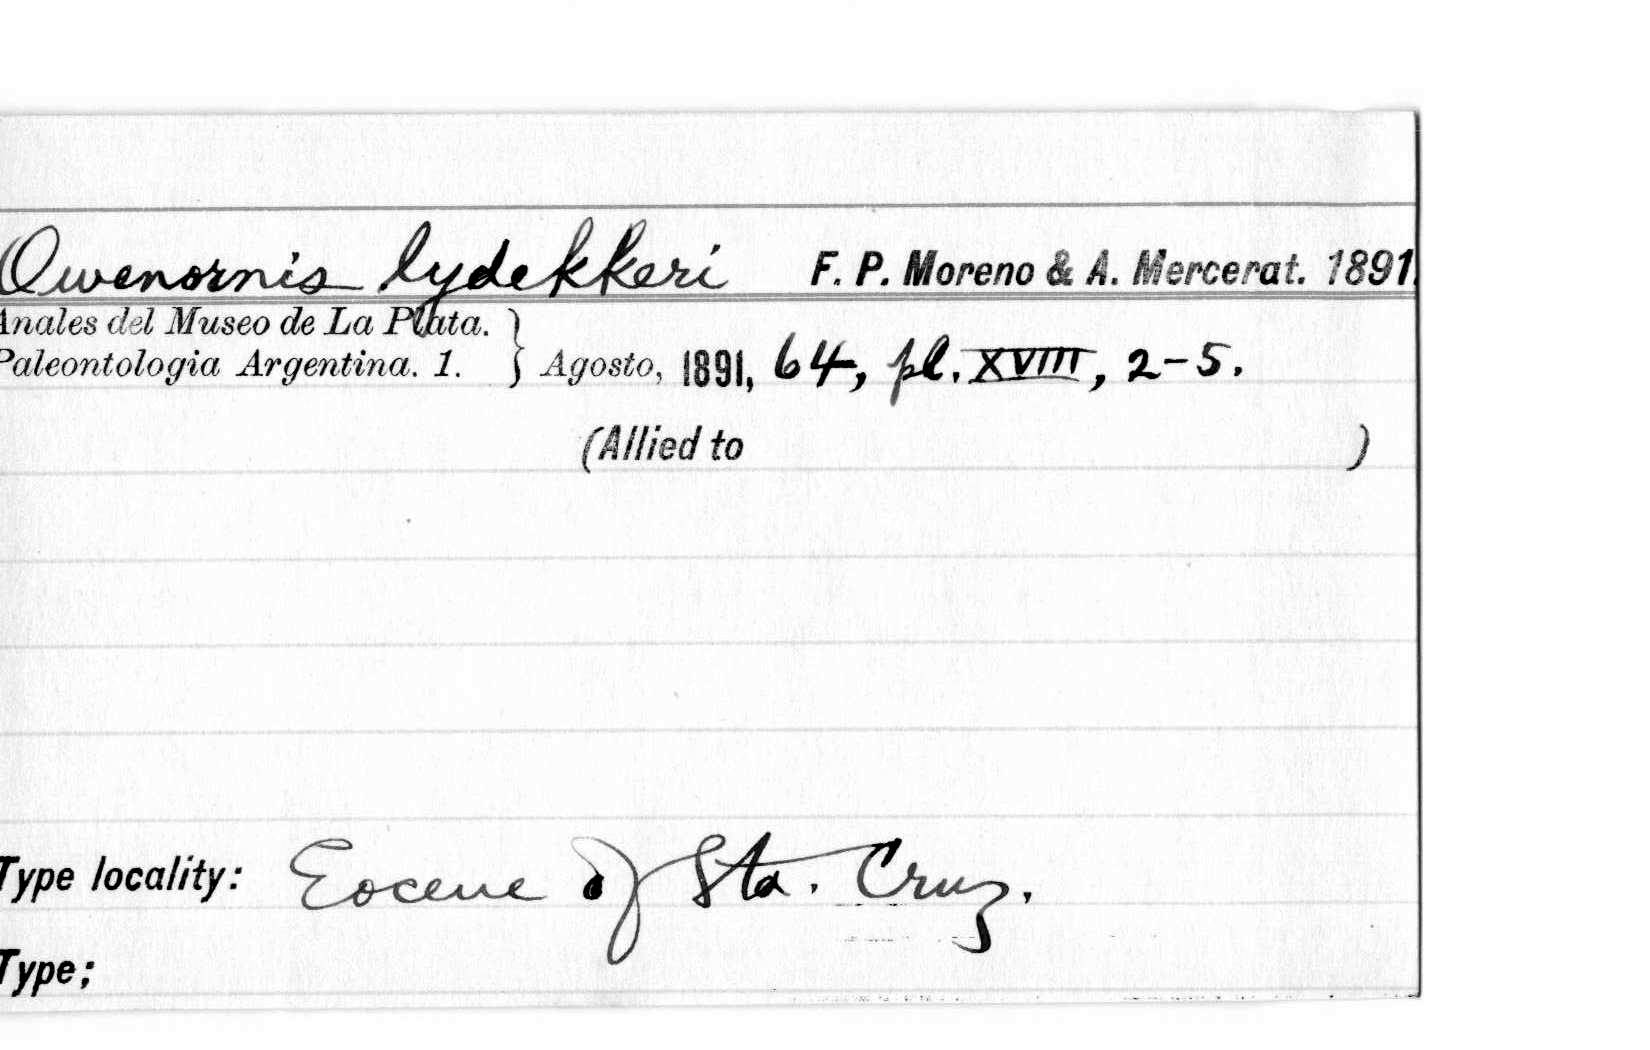 Owenornis lydekkeri F. P. Moreno & A. Mercerat. 1891.
Anales del Museo de La Plata. }
Paleontologia Argentina. 1. } Agosto, 1891, 64, pl. XVIII, 2-5.
(Allied to )
Type locality: Eocene of Sta. Cruz.
Type;